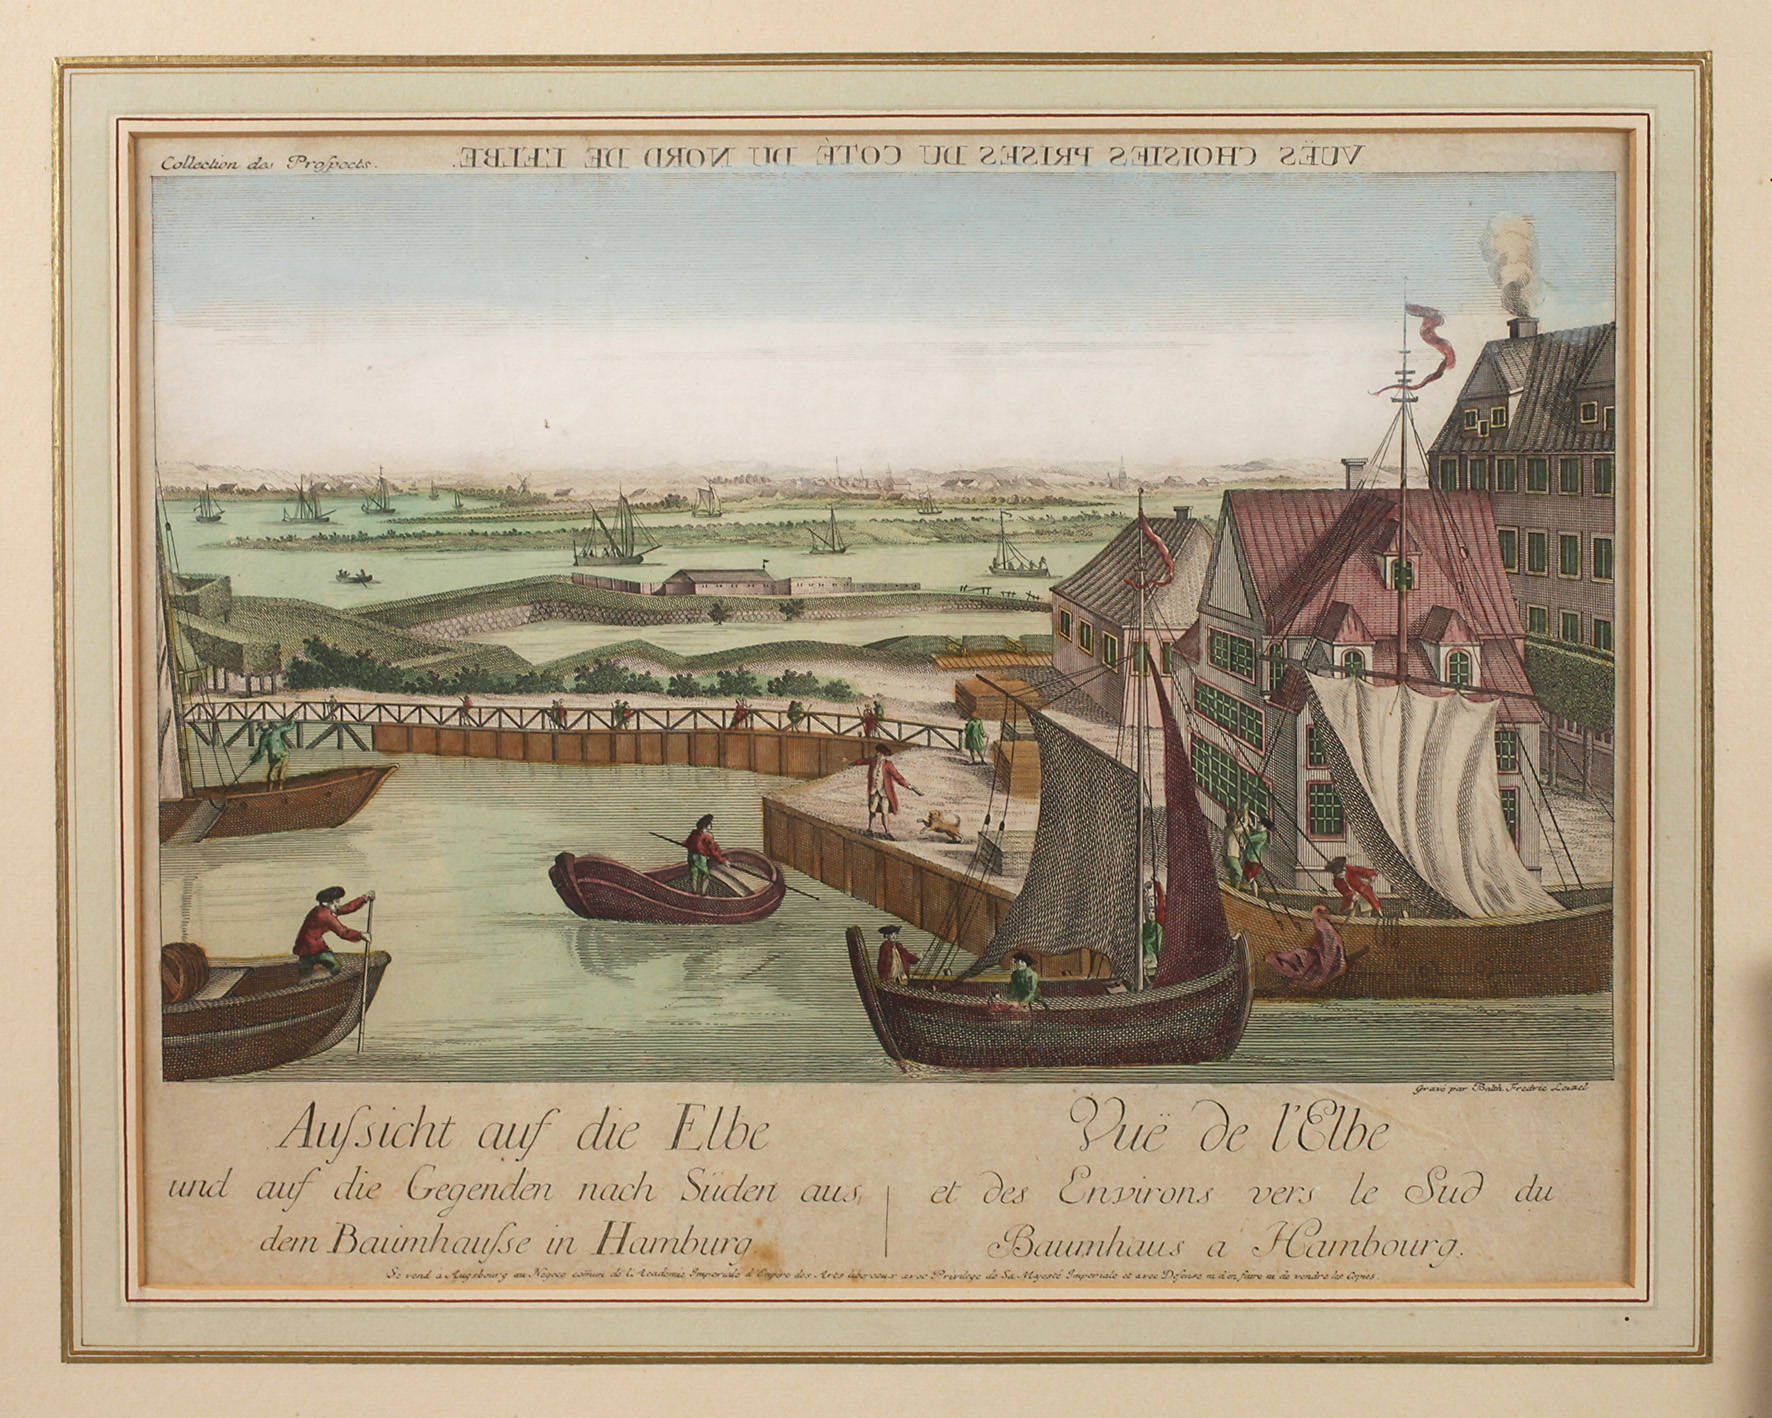 Collection des Prospects.
VUËS CHOISIES PRISES DU COTÈ DU NORD DE L'ELBE.
Gravé par Balth. Fredric Leizel
Ausſicht auf die Elbe
und auf die Gegenden nach Süden aus
dem Baumhauſse in Hamburg.
Vuë de l'Elbe
et des Environs vers le Sud du
Baumhaus a Hambourg.
Se vend a Augsbourg au Negoce comun de l'Academie Imperiale d'Empire des Arts liberaux avec Privilege de Sa Majesté Imperiale et avec Defense ni d'en faire ni de vendre les Copies.